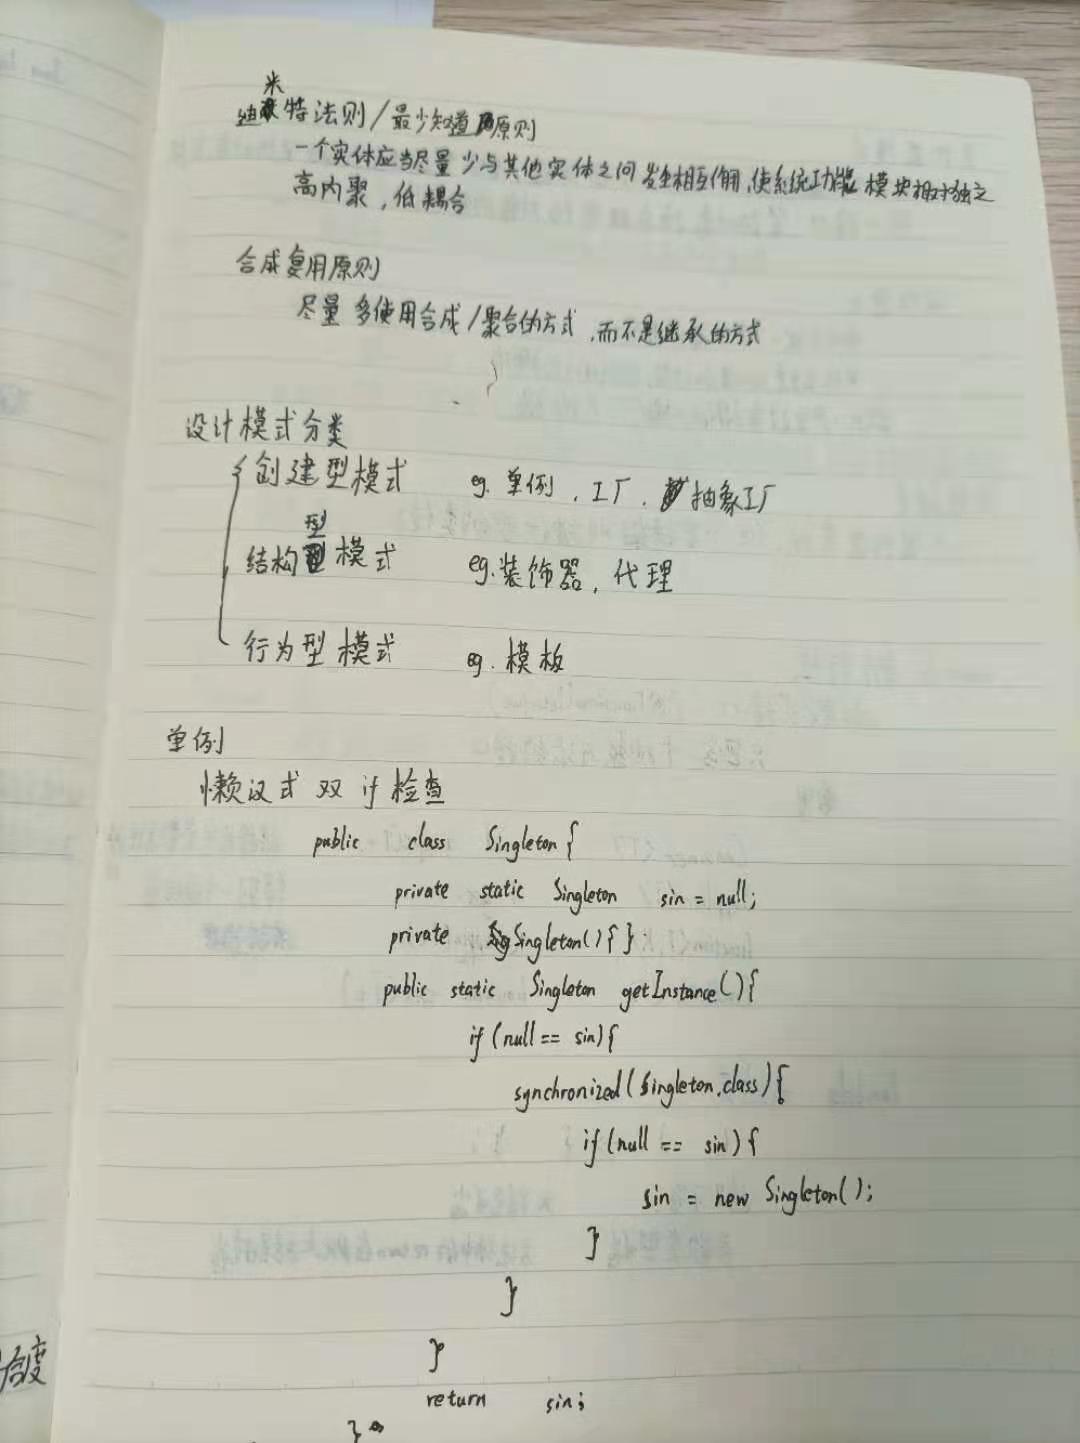 迪米特法则/最少知道原则
一个实体应当尽量少与其他实体之间发生相互作用,使系统功能模块相对独立
高内聚,低耦合
合成复用原则
尽量多使用合成/聚合的方式,而不是继承的方式
设计模式分类
创建型模式 eg.单例,工厂,抽象工厂
结构型模式 eg.装饰器,代理
行为型模式 eg.模板
单例
懒汉式 双 if 检查
public class Singleton{
private static Singleton sin = null;
private Singleton(){}
public static Singleton getInstance(){
if(null == sin){
synchronized(Singleton.class){
if(null == sin){
sin = new Singleton();
}
}
}
return sin;
}